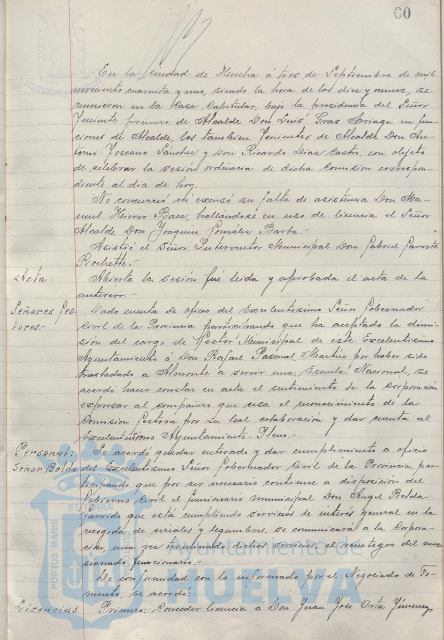 60
En la Ciudad de Huelva á tres de Septiembre de mil
novecientos cuarenta y uno, siendo la hora de las diez y nueve, se
reunieron en la Casa Capitular, bajo la presidencia del Señor
Teniente primero de Alcalde Don Luis Arriaga en fun-
ciones de Alcalde, los tambien Tenientes de Alcalde Don An-
tonio Toscano Sánchez y Don Ricardo Dias Castro, con objeto
de celebrar la sesión ordinaria de dicha Comisión correspon-
diente al dia de hoy.
No concurrió ni excusó su falta de asistencia Don Ma-
nuel Hierro Baca, hallándose en uso de licencia el Señor
Alcalde Don Joaquin González Barba.-
Asistió el Señor Interventor Municipal Don Gabriel Garrote
Acta: Abierta la sesión fué leida y aprobada el acta de la
anterior.-
Señores Ges- Dada cuenta de oficio del Excelentísimo Señor Gobernador
tores.- Civil de la Provincia participando que ha aceptado la dimi-
sión del cargo de Gestor Municipal de este Excelentísimo
Ayuntamiento á Don Rafael Pascual Martin por haber sido
trasladado a Almonte a servir una Escuela Nacional, se
acordó hacer constar en acta el sentimiento de la Corporación
expresar al compañero que cesa el reconocimiento de la
Comisión Gestora por su leal colaboración y dar cuenta al
Excelentísimo Ayuntamiento.
Personal: Se acordó quedar enterado y dar cumplimiento a oficio
Señor Belda del Excelentísimo Señor Gobernador Civil de la Provincia, par-
ticipando que por ser necesario continue a disposición del
Gobierno Civil el funcionario municipal Don Angel Belda
Garrido que está cumpliendo servicios de interés general en la
recogida de cereales y legumbres, se comunicará a la Corpora-
ción, una vez terminado dicho servicio, el reintegro del men-
cionado funcionario.-
De conformidad con lo informado por el Negociado de Fo-
mento, se acordó:
Licencias Primero: Conceder licencia a Don Juan José Orta Jimenez
PORTUS MARIS
ET TERRAE
Ayuntamiento de
HUELVA